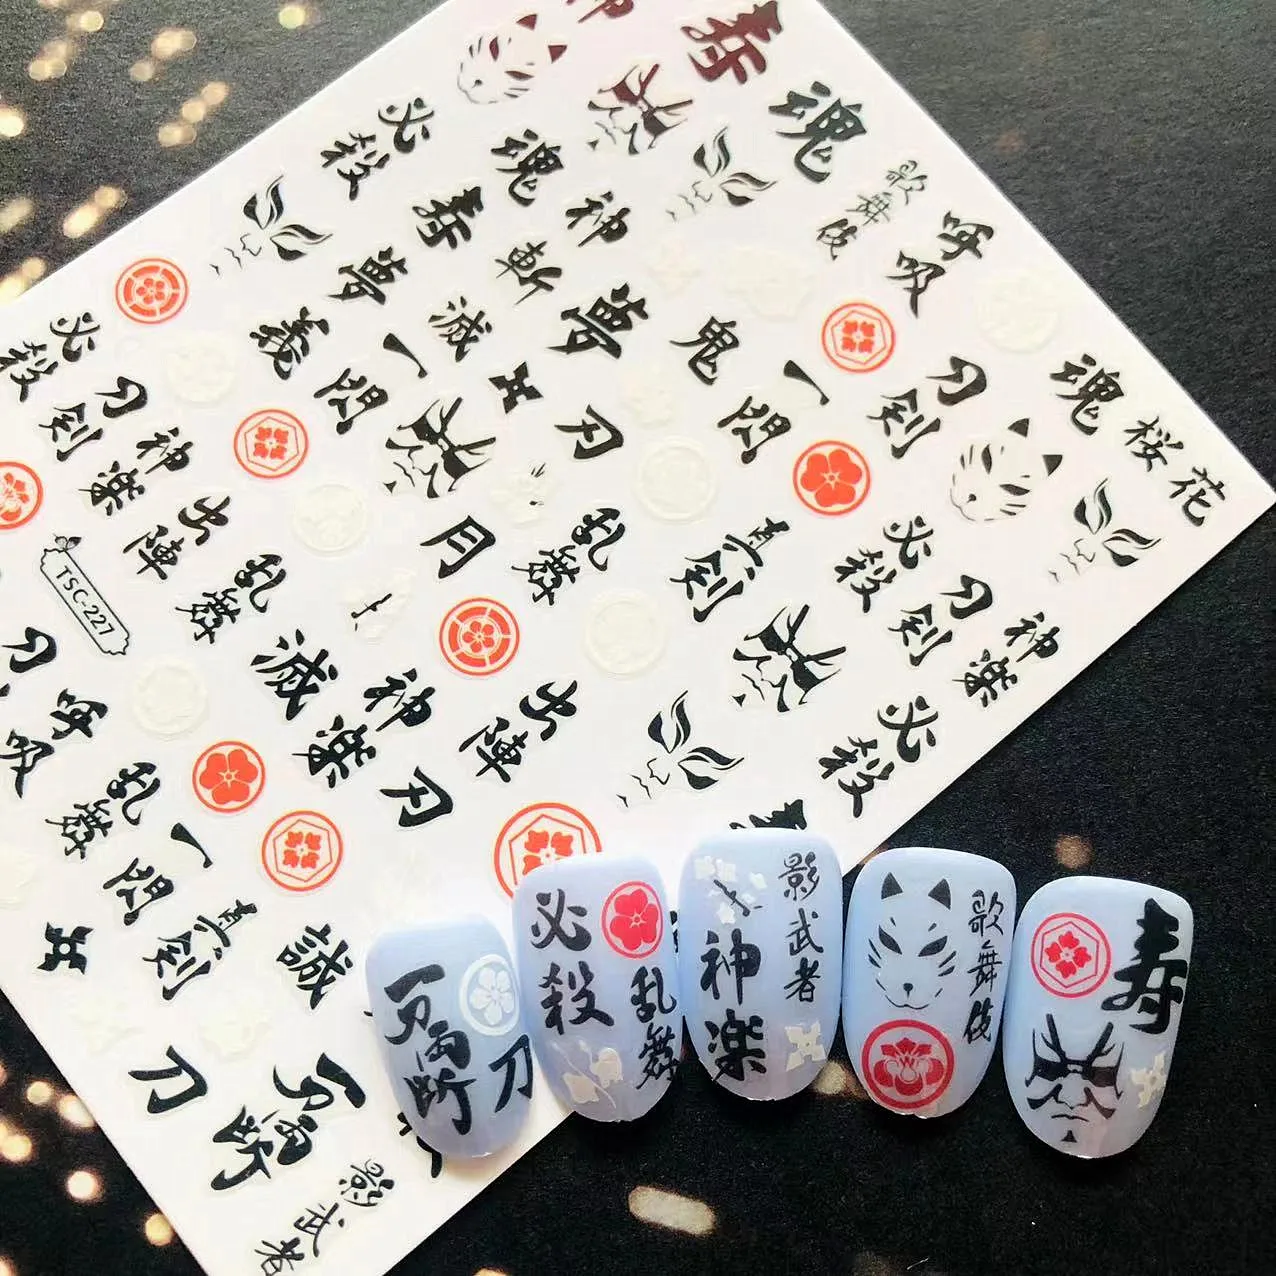 神
寿
魂
歌舞伎
呼吸
必殺
魂
神
寿
斬
夢
滅
夢
義
一閃
鬼
一閃
刀剣
魂
桜花
必殺
刀剣
神楽
出陣
乱舞
刃
月
乱舞
真剣
必殺
刀剣
神楽
必殺
TSC-227
滅
神楽
出陣
刃
刀
呼吸
乱舞
一閃
真剣
誠
刀
一刀両断
影武者
一刀両断
刀
必殺
乱舞
影武者
神楽
歌舞伎
寿